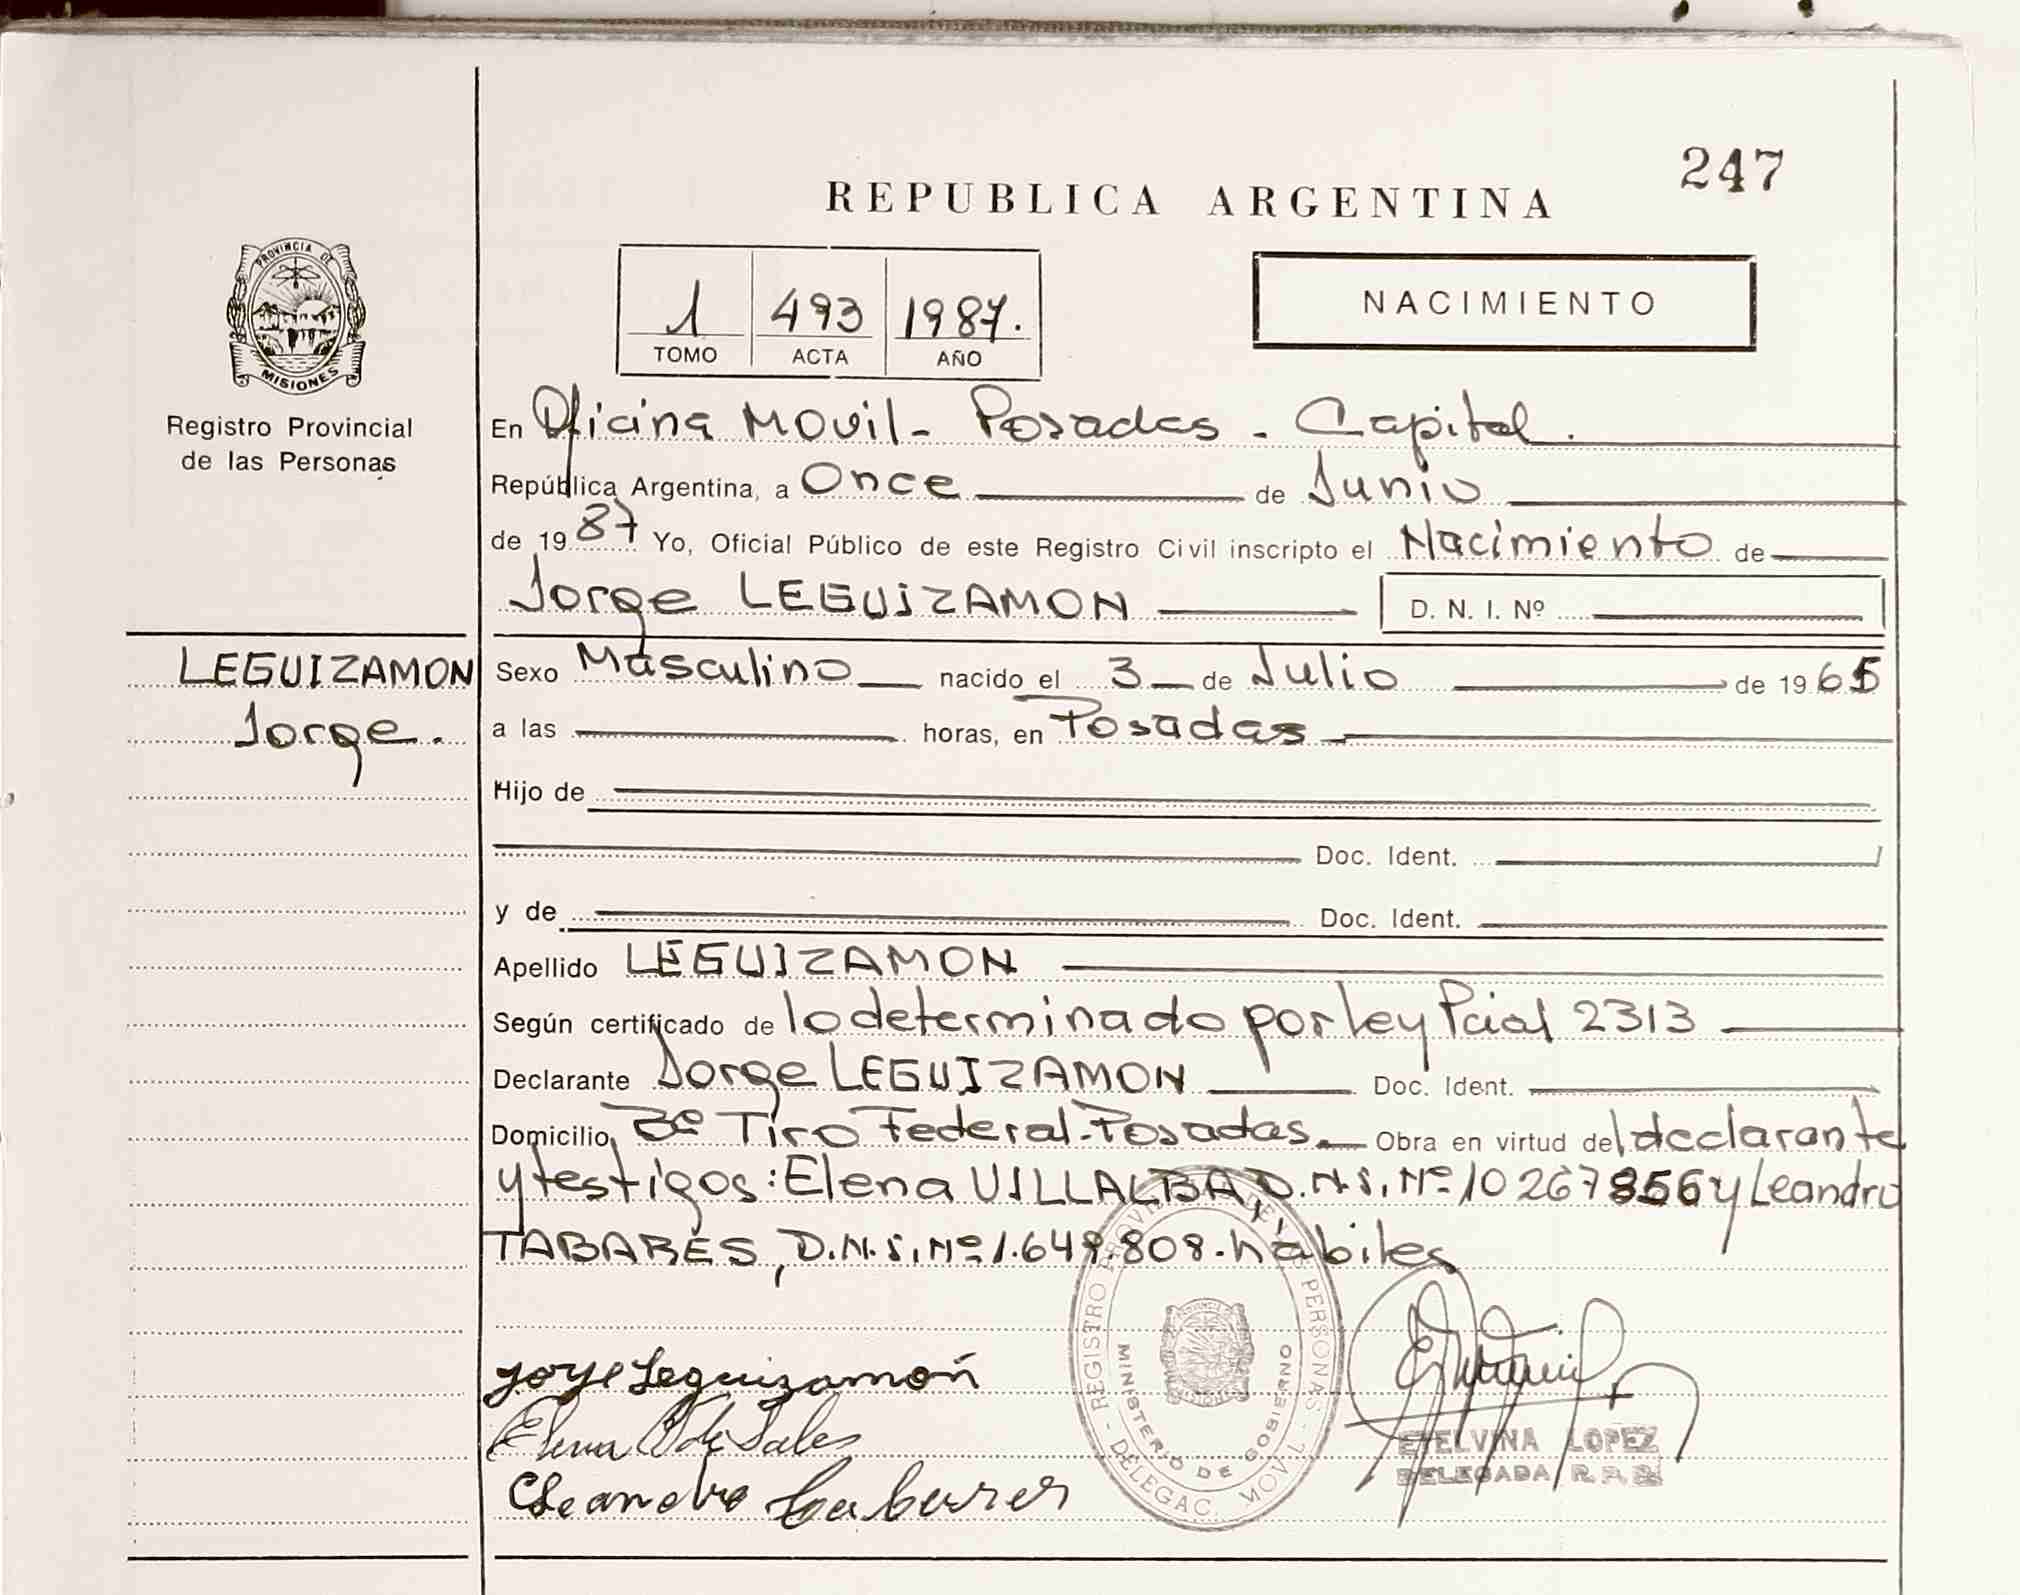 247
REPUBLICA ARGENTINA
PROVINCIA DE
MISIONES
Registro Provincial
de las Personas
1 493 1987.
TOMO ACTA AÑO
NACIMIENTO
En Oficina MOVIL - Posadas - Capital.
República Argentina, a Once de Junio
de 1987 Yo, Oficial Público de este Registro Civil inscripto el Nacimiento de
Jorge LEGUIZAMON D. N. I. Nº
LEGUIZAMON
Jorge.
Sexo Masculino nacido el 3 de Julio de 1965
a las horas, en Posadas
Hijo de
Doc. Ident.
y de Doc. Ident.
Apellido LEGUIZAMON
Según certificado de lo determinado por ley Pcial 2313
Declarante Jorge LEGUIZAMON Doc. Ident.
Domicilio Bº Tiro Federal - Posadas. Obra en virtud del declarante
y testigos: Elena VILLALBA, D.N.I. Nº 10267856 y Leandro
TABARES, D.N.I. Nº 1.649.808. hábiles
Jorge Leguizamón
Elena V de Sales
Leandro Tabarez
REGISTRO PROVINCIAL DE LAS PERSONAS
MINISTERIO DE GOBIERNO
DELEGAC. MOVIL
ETELVINA LOPEZ
DELEGADA R. P. P.